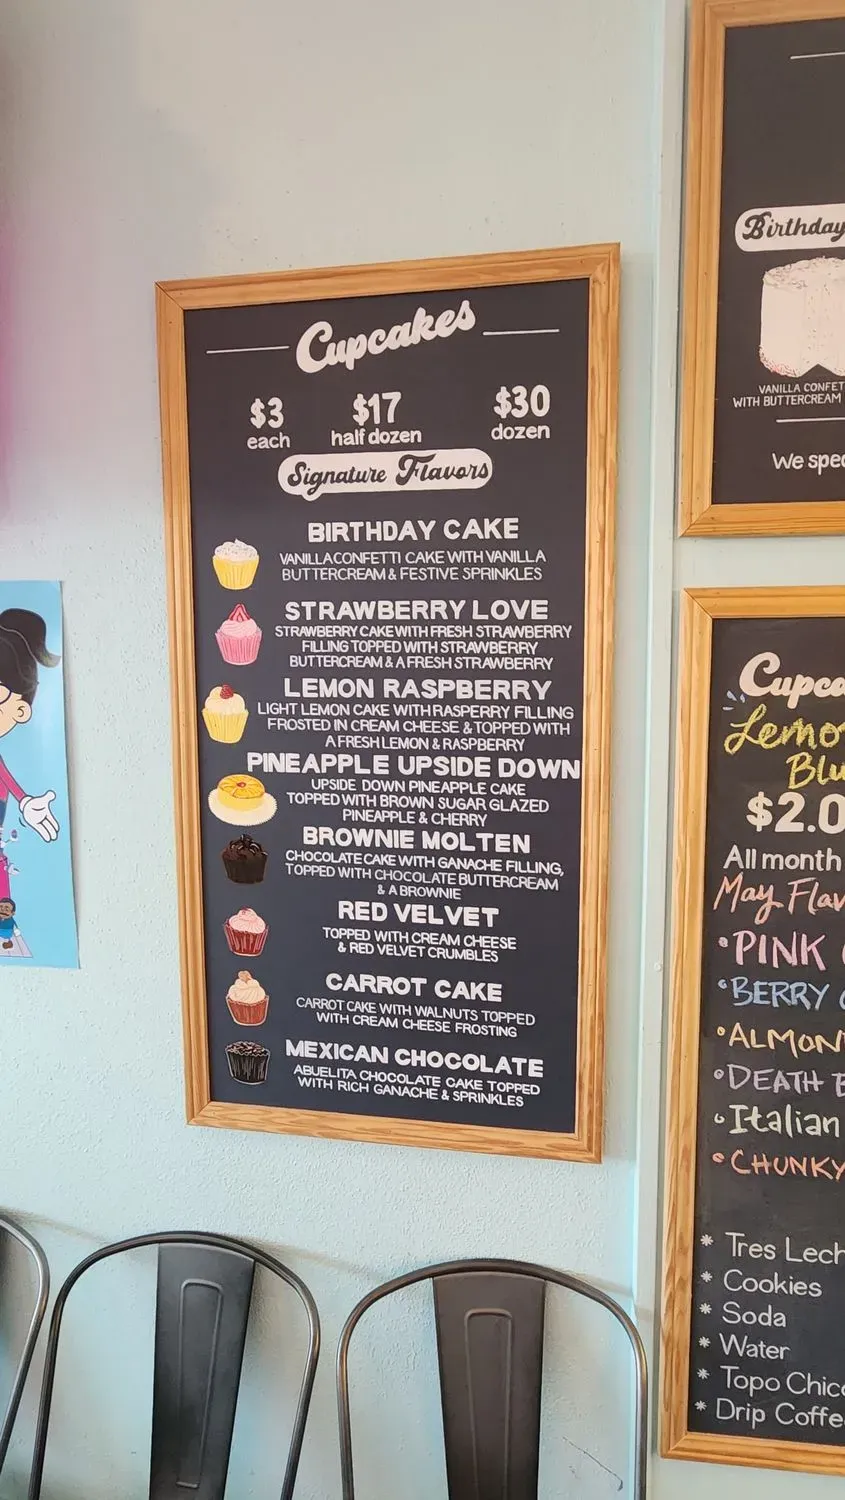 Cupcakes
$3 $17 $30
each half dozen dozen
Signature Flavors
BIRTHDAY CAKE
VANILLA CONFETTI CAKE WITH VANILLA
BUTTERCREAM & FESTIVE SPRINKLES
STRAWBERRY LOVE
STRAWBERRY CAKE WITH FRESH STRAWBERRY
FILLING TOPPED WITH STRAWBERRY
BUTTERCREAM & A FRESH STRAWBERRY
LEMON RASPBERRY
LIGHT LEMON CAKE WITH RASPERRY FILLING
FROSTED IN CREAM CHEESE & TOPPED WITH
A FRESH LEMON & RASPBERRY
PINEAPPLE UPSIDE DOWN
UPSIDE DOWN PINEAPPLE CAKE
TOPPED WITH BROWN SUGAR GLAZED
PINEAPPLE & CHERRY
BROWNIE MOLTEN
CHOCOLATE CAKE WITH GANACHE FILLING,
TOPPED WITH CHOCOLATE BUTTERCREAM
& A BROWNIE
RED VELVET
TOPPED WITH CREAM CHEESE
& RED VELVET CRUMBLES
CARROT CAKE
CARROT CAKE WITH WALNUTS TOPPED
WITH CREAM CHEESE FROSTING
MEXICAN CHOCOLATE
ABUELITA CHOCOLATE CAKE TOPPED
WITH RICH GANACHE & SPRINKLES
Birthday
VANILLA CONFET
WITH BUTTERCREAM
We spec
Cupca
Lemo
Blu
$2.0
All month
May Flav
• PINK
• BERRY
• ALMON
• DEATH B
• Italian
• CHUNKY
* Tres Lech
* Cookies
* Soda
* Water
* Topo Chic
* Drip Coffe